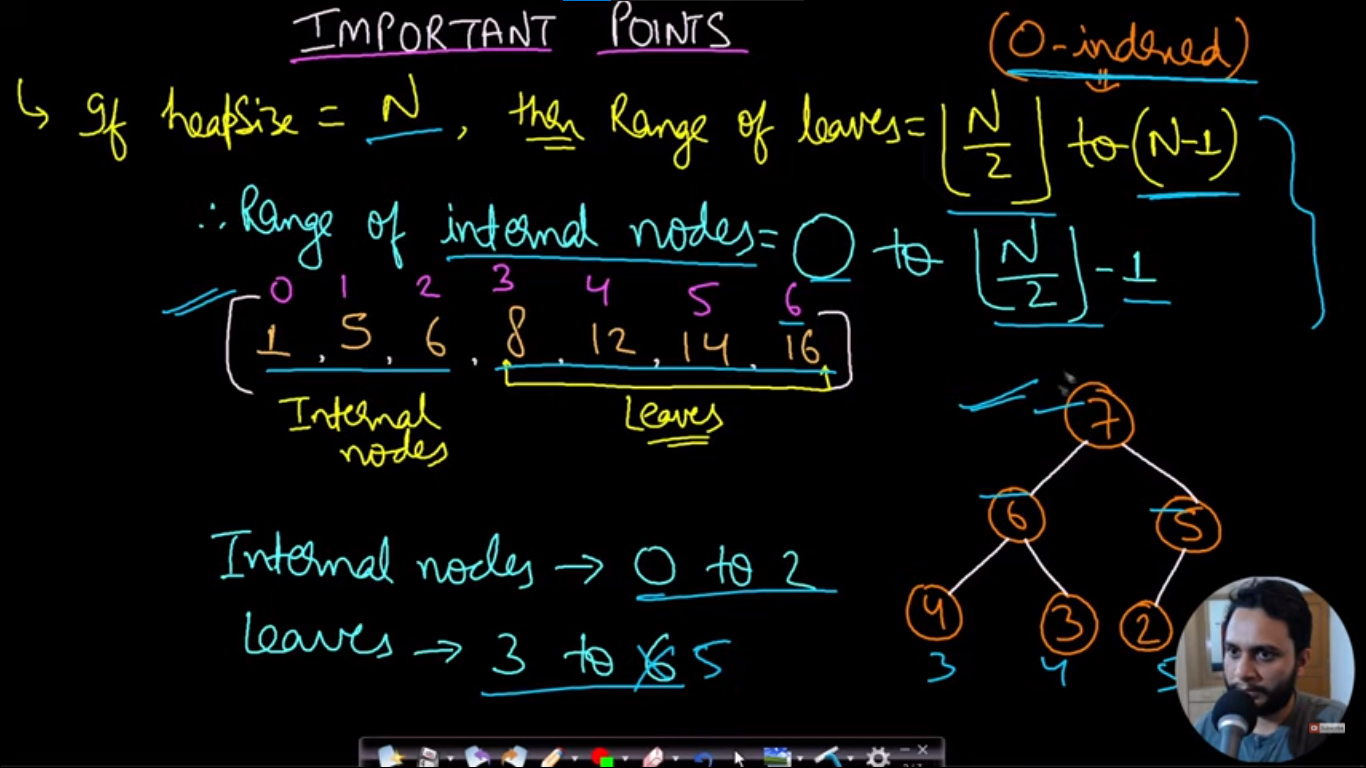 IMPORTANT POINTS
(0-indexed)
↳ If heapSize = N, then Range of leaves = ⌊N/2⌋ to (N-1)
∴ Range of internal nodes = 0 to ⌊N/2⌋ - 1
0 1 2 3 4 5 6
[1, 5, 6, 8, 12, 14, 16]
Internal nodes
Leaves
7
6 5
4 3 2
3 4 5
Internal nodes → 0 to 2
leaves → 3 to 6 5
Subscribe